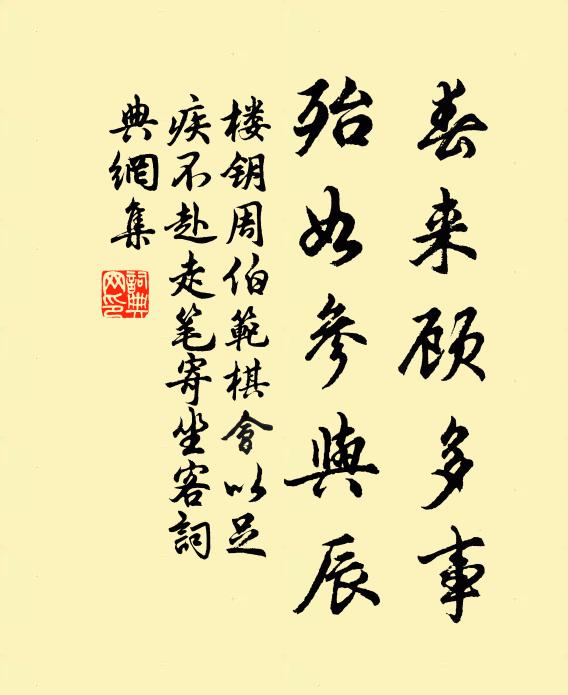 春来顾多事
殆如參與辰
楼钥周伯範棋會以足
疾不赴走笔寄坐客詞
典網集
詞典
网印